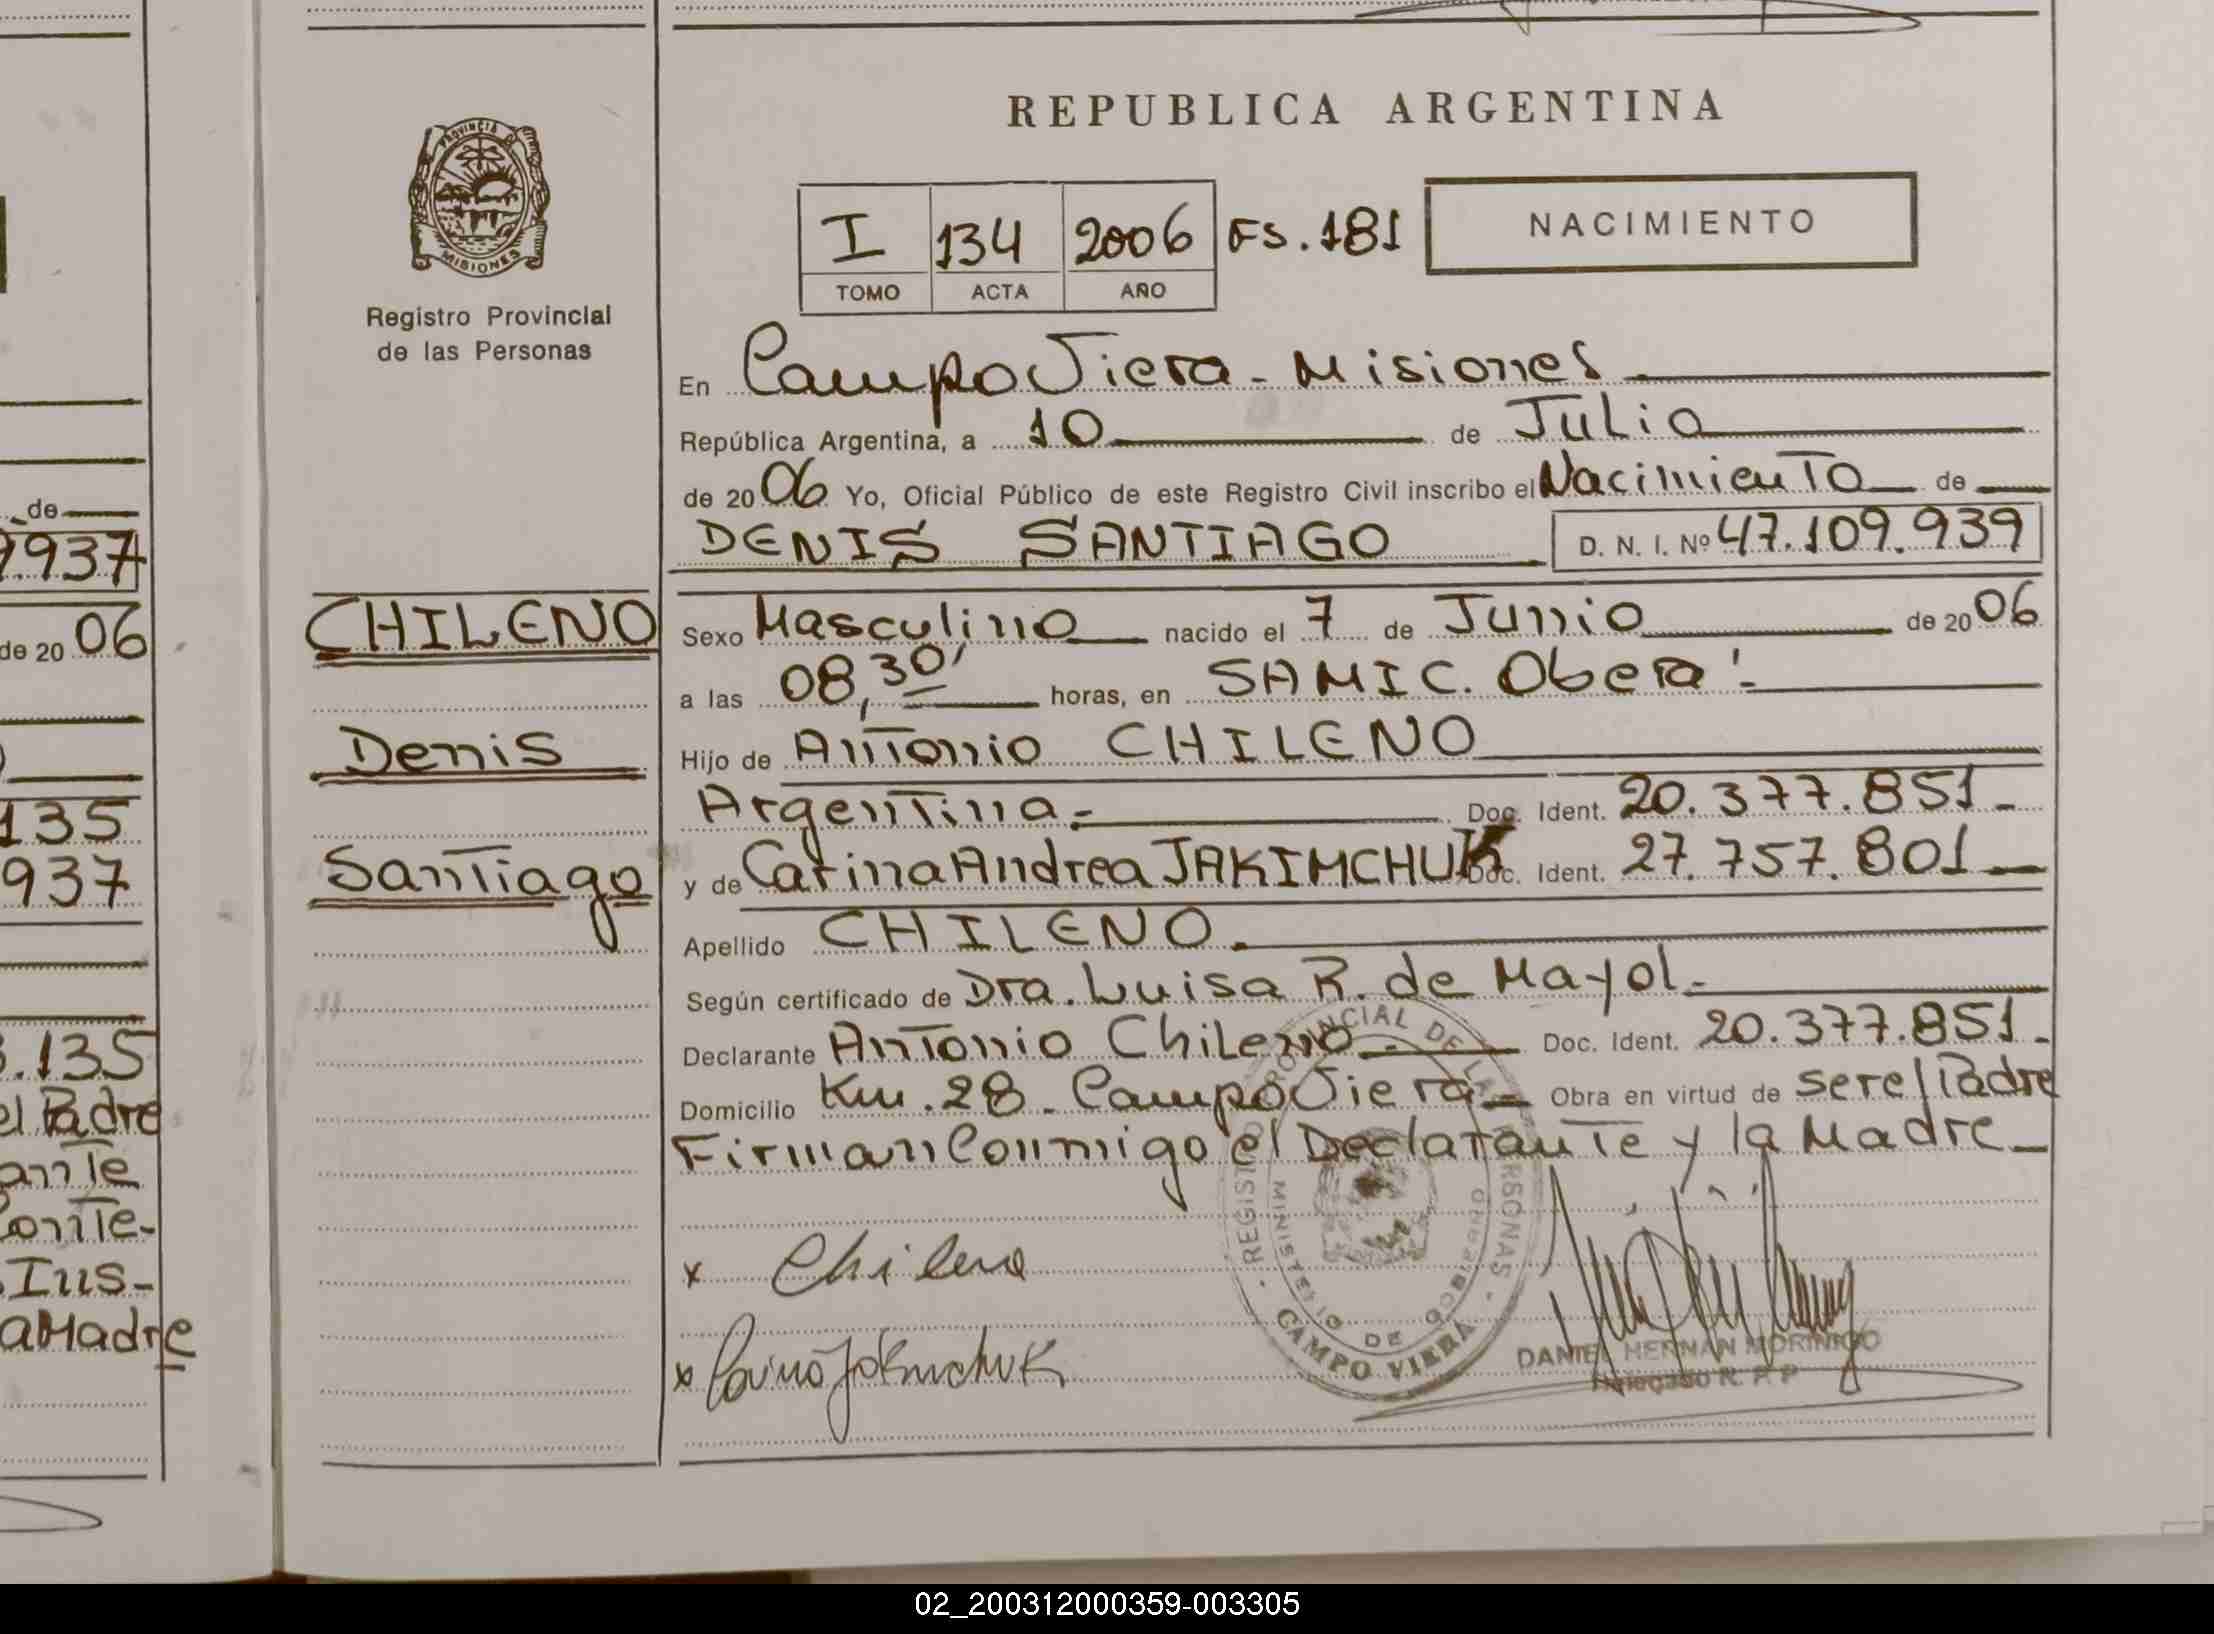 REPUBLICA ARGENTINA
PROVINCIA DE
MISIONES
Registro Provincial
de las Personas
I 134 2006 FS. 181 NACIMIENTO
TOMO ACTA AÑO
En Campo Viera - Misiones
República Argentina, a 10 de Julio
de 2006 Yo, Oficial Público de este Registro Civil inscribo el Nacimiento de
DENIS SANTIAGO D. N. I. Nº 47.109.939
CHILENO
Denis
Santiago
Sexo Masculino nacido el 7 de Junio de 2006
a las 08,30' horas, en SAMIC. Obera'-
Hijo de Antonio CHILENO
Argentina.- Doc. Ident. 20.377.851-
y de Carina Andrea JAKIMCHUK Doc. Ident. 27.757.801-
Apellido CHILENO.
Según certificado de Dra. Luisa R. de Mayol.-
Declarante Antonio Chileno.- Doc. Ident. 20.377.851.-
Domicilio Km. 28 - Campo Viera- Obra en virtud de ser el Padre
Firman Conmigo el Declarante y la Madre-
x Chileno
x Carina Jakimchuk
REGISTRO PROVINCIAL DE LAS PERSONAS
MINISTERIO DE GOBIERNO
CAMPO VIERA
DANIEL HERNAN MORINIGO
Delegado R. P. P
de
9.937
de 20 06
135
937
.135
el Padre
ante
Conte-
Ins-
a Madre
02_200312000359-003305